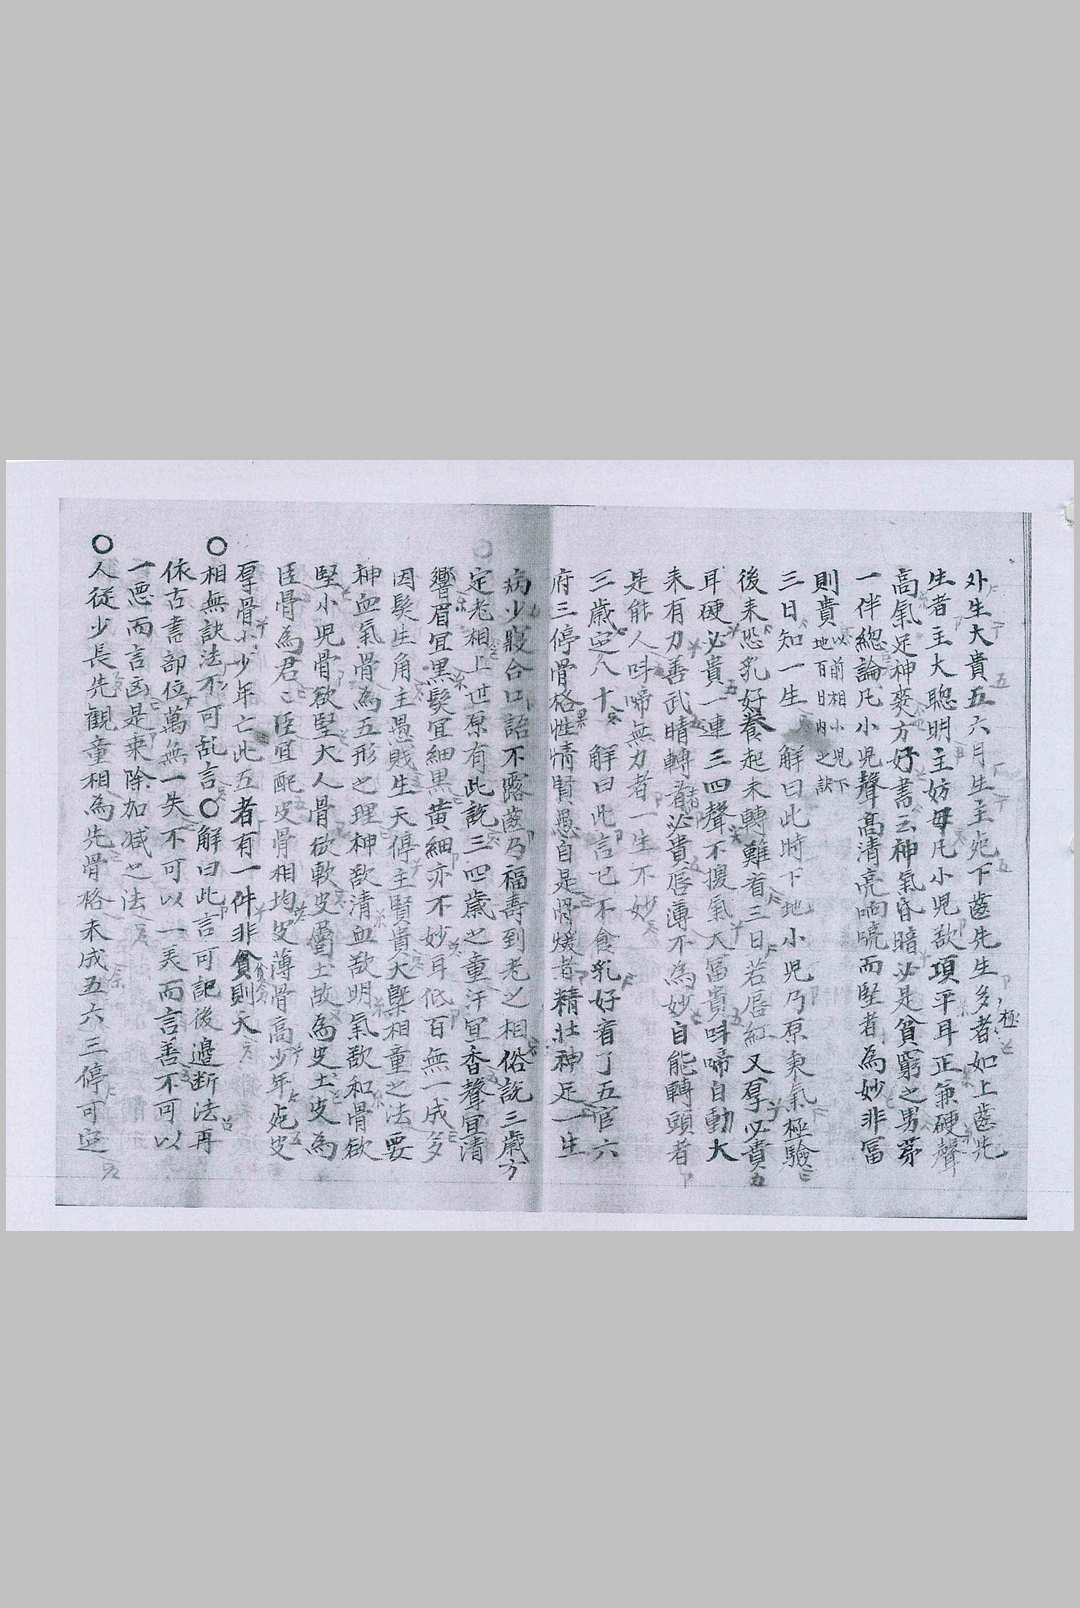 外生大貴五六月生主死下齒先生多者如上齒先
生者主大聰明主妨母凡小児欲項平耳正兼硬聲
高氣足神爽方好書云神氣昏暗必是貧窮之男茅
一件總論凡小児聲高清亮响喨而堅者為妙非冨
則貴 以前相小児下地百日内之訣
三日知一生 解曰此時下地小児乃原秉氣極驗
後来恐乳好養起未轉難看三日若唇紅又厚必貴
耳硬必貴一連三四聲不換氣大冨貴呌啼自動大
来有力善武睛轉者必貴唇薄不為妙自能轉頭者
是能人呌啼無力者一生不妙
三歳定八十 解曰此言已不食乳好看了五官六
府三停骨格性情賢愚自是骨煖者精壮神足一生
病少寢合口語不露齒乃福壽到老之相俗説三歳方
定老相上世原有此説三四歳之童汗宜香聲宜清
響眉宜黒髮宜細黒黄細亦不妙耳低百無一成多
因髮生角主愚賎生天停主賢貴大槩相童之法要
神血氣骨為五形之理神欲清血欲明氣欲和骨欲
堅小児骨欲堅大人骨欲軟皮属土故為皮土皮為
臣骨為君〻臣宜配皮骨相均皮薄骨高少年死皮
厚骨小少年亡此五者有一件非貧則夭
〇相無訣法不可乱言〇解曰此言可記後邉断法再
依古書部位萬無一失不可以一美而言善不可以
一悪而言凶是乗除加减之法
〇人従少長先觀童相為先骨格未成五六三停可定